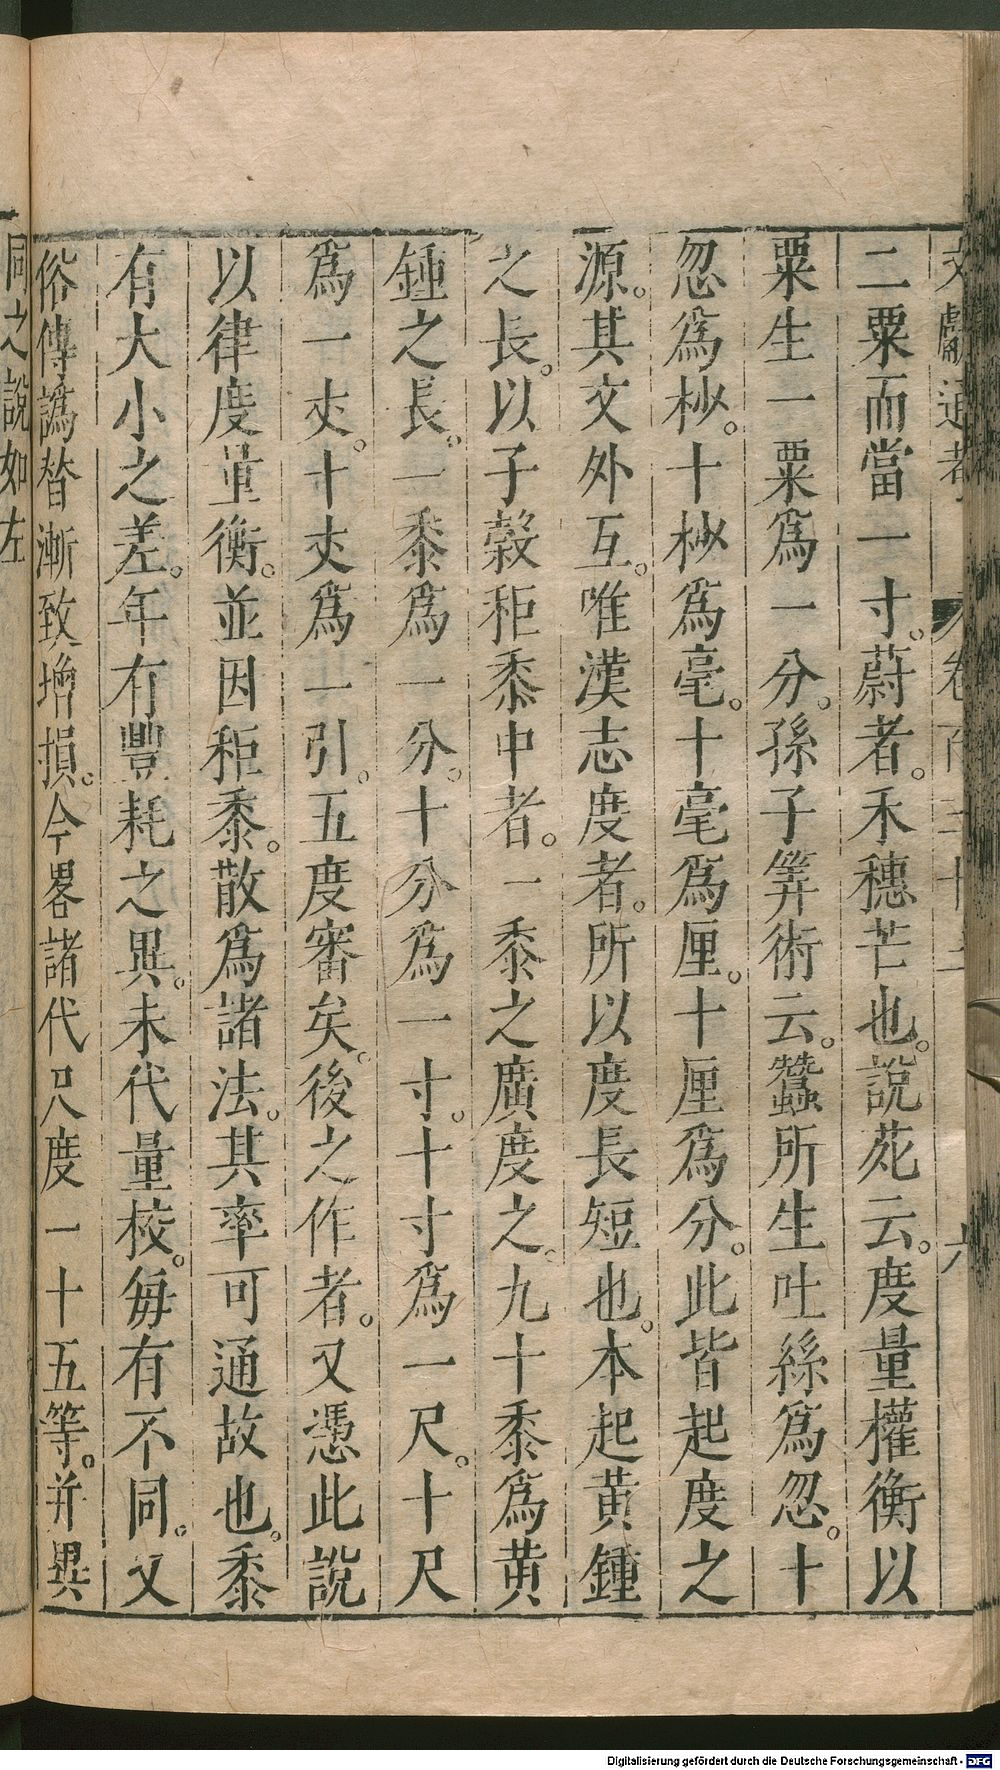 文獻通考 卷百三十三 六
二粟而當一寸。蔚者。禾穗芒也。說苑云。度量權衡以
粟生一粟爲一分。孫子筭術云。蠶所生吐絲爲忽。十
忽爲杪。十杪爲毫。十毫爲厘。十厘爲分。此皆起度之
源。其文外互。唯漢志度者。所以度長短也。本起黃鍾
之長。以子穀秬黍中者。一黍之廣度之。九十黍爲黃
鍾之長。一黍爲一分。十分爲一寸。十寸爲一尺。十尺
爲一丈。十丈爲一引。五度審矣。後之作者。又憑此說
以律度量衡。並因秬黍。散爲諸法。其率可通故也。黍
有大小之差。年有豐耗之異。未代量校。每有不同。又
俗傳譌替漸致增損。今畧諸代尺度一十五等。并異
同之說如左
Digitalisierung gefördert durch die Deutsche Forschungsgemeinschaft - DFG